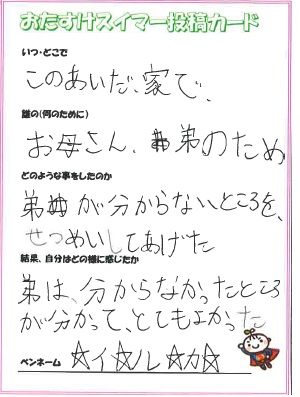 おたすけスイマー投稿カード
いつ・どこで
このあいだ、家で、
誰の(何のために)
お母さん、弟のため
どのような事をしたのか
弟が分からないところを、
せつめいしてあげた
結果、自分はどの様に感じたか
弟は、分からなかったところ
が分かって、とてもよかった
ペンネーム ☆イ☆ル☆カ☆